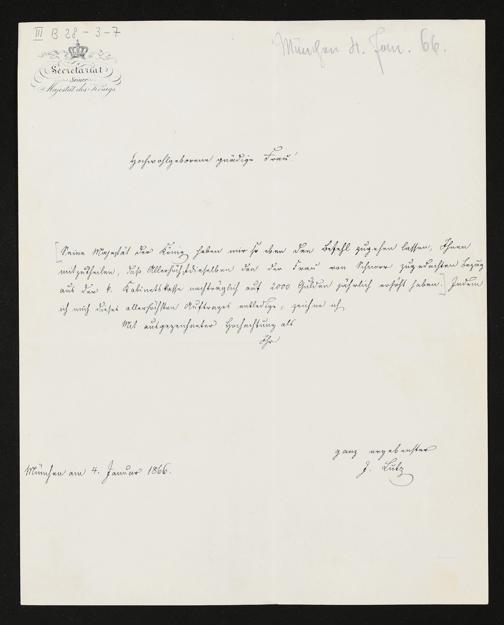 III B 28 - 3 - 7
München 4. Jan. 66.
Secretariat
Seiner
Majestät des Königs
Hochwohlgeborene gnädige Frau!
[Seine Majestät der König haben mir so eben den Befehl zugehen lassen, Ihnen
mitzutheilen, daß Allerhöchstdieselben den der Frau von Schnorr zugedachten Bezug
aus der k. Kabinetskasse nachträglich auf 2000 Gulden jährlich erhöht haben.] Indem
ich mich dieses allerhöchsten Auftrages entledige, zeichne ich
Mit ausgezeichneter Hochachtung als
Ihr
ganz ergebenster
J. Lutz
München am 4. Januar 1866.